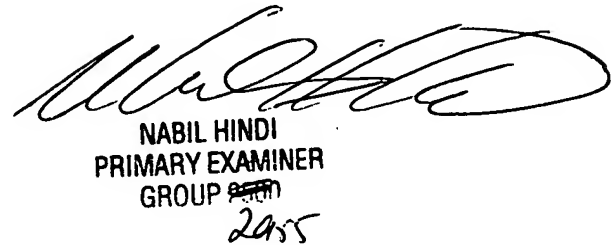 NABIL HINDI
PRIMARY EXAMINER
GROUP
2655